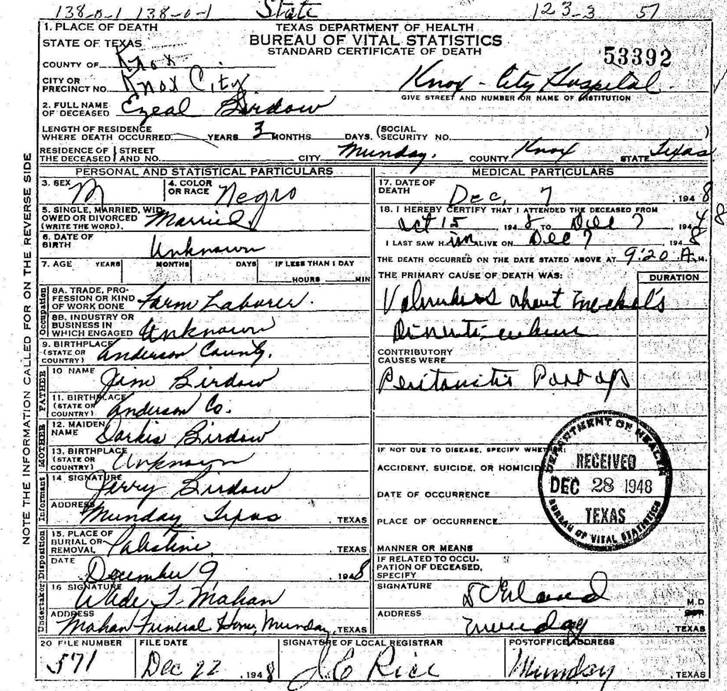 138-0-1 138-0-1 State 123-3 51
1. PLACE OF DEATH
STATE OF TEXAS
TEXAS DEPARTMENT OF HEALTH
BUREAU OF VITAL STATISTICS
STANDARD CERTIFICATE OF DEATH
53392
COUNTY OF Knox
CITY OR PRECINCT NO. Knox City
Knox-City Hospital
GIVE STREET AND NUMBER OR NAME OF INSTITUTION
2. FULL NAME OF DECEASED Ezeal Birdow
LENGTH OF RESIDENCE WHERE DEATH OCCURRED YEARS 3 MONTHS DAYS. (SOCIAL SECURITY NO.
RESIDENCE OF THE DECEASED STREET AND NO. CITY Munday, COUNTY Knox STATE Texas
PERSONAL AND STATISTICAL PARTICULARS
3. SEX M 4. COLOR OR RACE Negro
5. SINGLE, MARRIED, WIDOWED OR DIVORCED (WRITE THE WORD). Married
6. DATE OF BIRTH Unknown
7. AGE YEARS MONTHS DAYS IF LESS THAN 1 DAY
HOURS MIN
8A. TRADE, PROFESSION OR KIND OF WORK DONE Farm Laborer.
8B. INDUSTRY OR BUSINESS IN WHICH ENGAGED Unknown
9. BIRTHPLACE (STATE OR COUNTRY) Anderson County.
10 NAME Jim Birdow
11. BIRTHPLACE (STATE OR COUNTRY) Anderson Co.
12. MAIDEN NAME Birdow
13. BIRTHPLACE (STATE OR COUNTRY) Unknown
14. SIGNATURE Jerry Birdow
ADDRESS Munday Texas TEXAS
15. PLACE OF BURIAL OR REMOVAL Palestine, TEXAS
DATE December 9 1948
16 SIGNATURE Wade T. Mahan
ADDRESS Mahan Funeral Home, Munday, TEXAS
MEDICAL PARTICULARS
17. DATE OF DEATH Dec, 7 1948
18. I HEREBY CERTIFY THAT I ATTENDED THE DECEASED FROM
Oct 15 1948 TO Dec 7 1948
I LAST SAW HIM ALIVE ON Dec 7 1948
THE DEATH OCCURRED ON THE DATE STATED ABOVE AT 9:20 A.M.
THE PRIMARY CAUSE OF DEATH WAS: DURATION
about Meckel's
CONTRIBUTORY CAUSES WERE
Peritonitis Post op
IF NOT DUE TO DISEASE, SPECIFY WHETHER:
ACCIDENT, SUICIDE, OR HOMICIDE
DATE OF OCCURRENCE
PLACE OF OCCURRENCE
MANNER OR MEANS
IF RELATED TO OCCUPATION OF DECEASED, SPECIFY
SIGNATURE M.D
ADDRESS Munday TEXAS
DEPARTMENT OF HEALTH
RECEIVED
DEC 28 1948
TEXAS
BUREAU OF VITAL STATISTICS
20 FILE NUMBER 571
FILE DATE Dec 22 1948
SIGNATURE OF LOCAL REGISTRAR J.C Rice
POSTOFFICE ADDRESS Munday, TEXAS
NOTE THE INFORMATION CALLED FOR ON THE REVERSE SIDE
Occupation
FATHER
MOTHER
Informant
Disposition
Undertaker